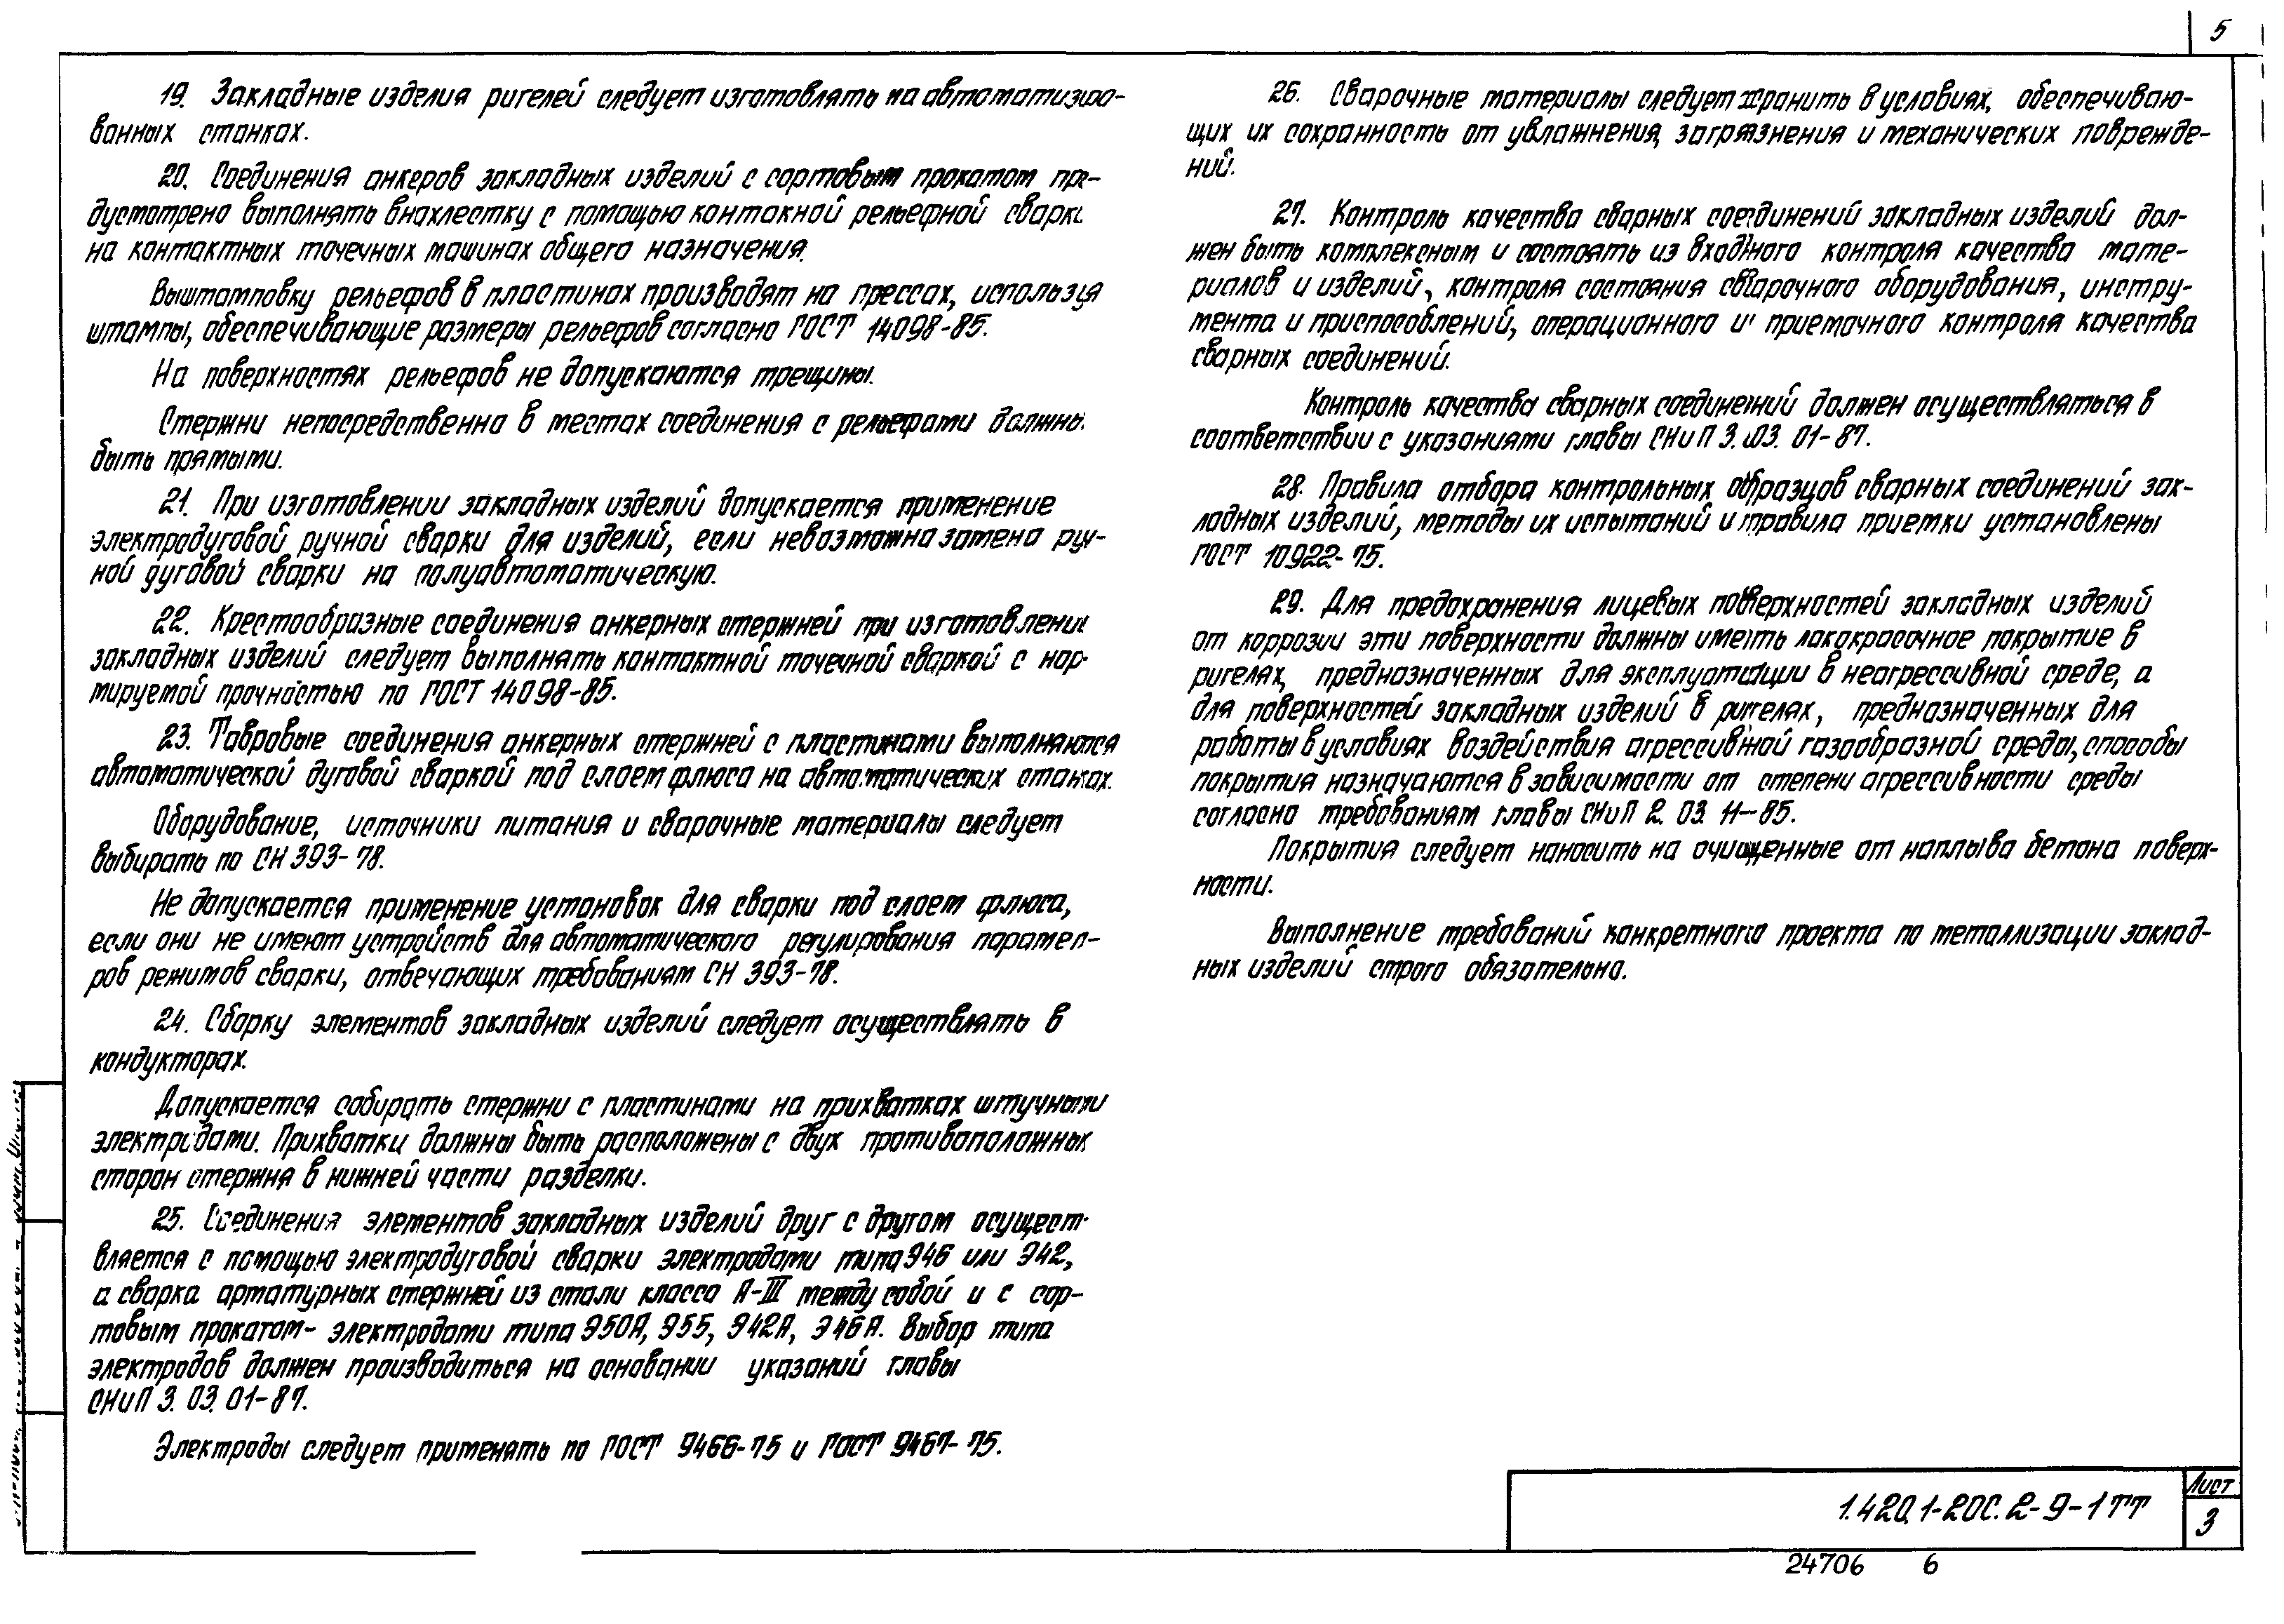 5
19. Закладные изделия ригелей следует изготовлять на автоматизиро-
ванных станках.
20. Соединения анкеров закладных изделий с сортовым прокатом пре-
дусмотрено выполнять внахлестку с помощью контакной рельефной сварки
на контактных точечных машинах общего назначения.
Выштамповку рельефов в пластинах производят на прессах, используя
штампы, обеспечивающие размеры рельефов согласно ГОСТ 14098-85.
На поверхностях рельефов не допускаются трещины.
Стержни непосредственно в местах соединения с рельефами должны
быть прямыми.
21. При изготовлении закладных изделий допускается применение
электродуговой ручной сварки для изделий, если невозможна замена руч-
ной дуговой сварки на полуавтоматическую.
22. Крестообразные соединения анкерных стержней при изготовлении
закладных изделий следует выполнять контактной точечной сваркой с нор-
мируемой прочностью по ГОСТ 14098-85.
23. Тавровые соединения анкерных стержней с пластинами выполняются
автоматической дуговой сваркой под слоем флюса на автоматических станках.
Оборудование, источники питания и сварочные материалы следует
выбирать по СН 393-78.
Не допускается применение установок для сварки под слоем флюса,
если они не имеют устройств для автоматического регулирования парамет-
ров режимов сварки, отвечающих требованиям СН 393-78.
24. Сборку элементов закладных изделий следует осуществлять в
кондукторах.
Допускается собирать стержни с пластинами на прихватках штучными
электродами. Прихватки должны быть расположены с двух противоположных
сторон стержня в нижней части разделки.
25. Соединения элементов закладных изделий друг с другом осущест-
вляется с помощью электродуговой сварки электродами типа Э46 или Э42,
а сварка арматурных стержней из стали класса А-III между собой и с сор-
товым прокатом- электродами типа Э50А, Э55, Э42А, Э46А. Выбор типа
электродов должен производиться на основании указаний главы
СНиП 3. 03. 01-87.
Электроды следует применять по ГОСТ 9466-75 и ГОСТ 9467-75.
26. Сварочные материалы следует хранить в условиях, обеспечиваю-
щих их сохранность от увлажнения, загрязнения и механических поврежде-
ний.
27. Контроль качества сварных соединений закладных изделий дол-
жен быть комплексным и состоять из входного контроля качества мате-
риалов и изделий, контроля состояния сварочного оборудования, инстру-
мента и приспособлений, операционного и приемочного контроля качества
сварных соединений.
Контроль качества сварных соединений должен осуществляться в
соответствии с указаниями главы СНиП 3. 03. 01-87.
28. Правила отбора контрольных образцов сварных соединений зак-
ладных изделий, методы их испытаний и правила приемки установлены
ГОСТ 10922-75.
29. Для предохранения лицевых поверхностей закладных изделий
от коррозии эти поверхности должны иметь лакокрасочное покрытие в
ригелях, предназначенных для эксплуатации в неагрессивной среде, а
для поверхностей закладных изделий в ригелях, предназначенных для
работы в условиях воздействия агрессивной газообразной среды, способы
покрытия назначаются в зависимости от степени агрессивности среды
согласно требованиям главы СНиП 2. 03. 11-85.
Покрытия следует наносить на очищенные от наплыва бетона поверх-
ности.
Выполнение требований конкретного проекта по металлизации заклад-
ных изделий строго обязательно.
1.420.1-20С.2-9-1ТТ
Лист
3
24706 6